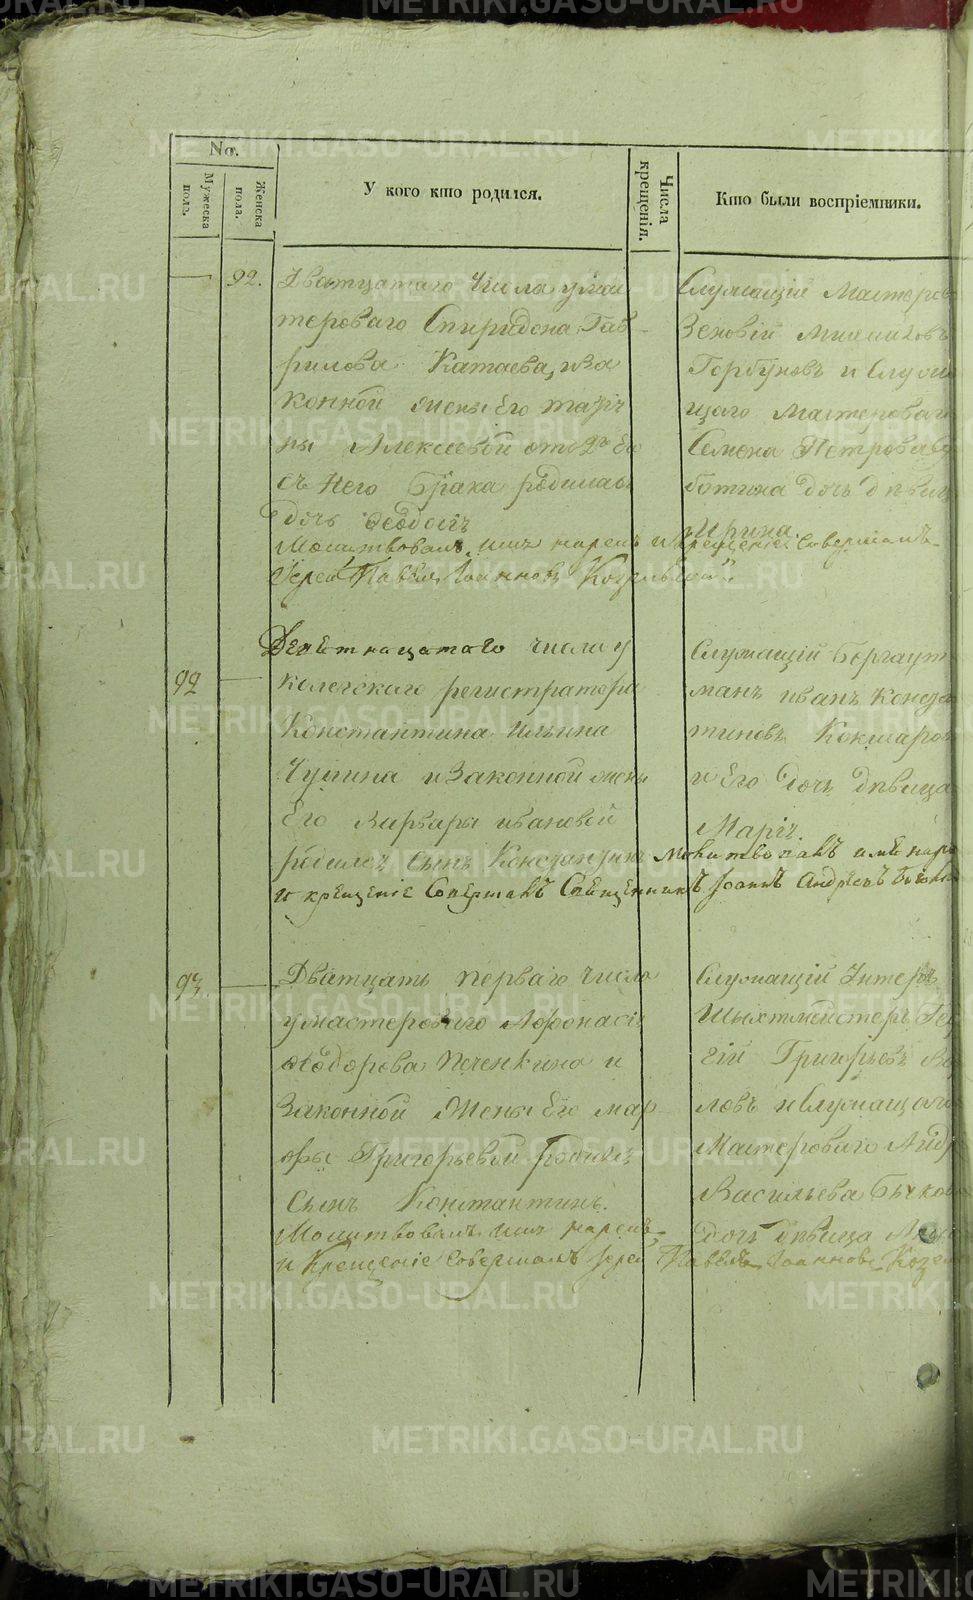 No.
Мужеска пола.
Женска пола.
У кого кто родился.
Числа крещенiя.
Кто были воспрiемники.
92.
Дватцатаго Числа у мас
тероваго Спиридона Гав
рилова Катаева, и за
конной жены Его
ны Алексеевой от 2го Ево
съ Него брака родилась
дочь Феодосiя
Молитвовалъ имя нарекъ и крещенiе Совершалъ
Iерей Павелъ Iоанновъ
Служащiй Мастеров
Зеновiй
Горбуновъ и Служа
щаго Мастероваго
Семена Петрова
дочь девица
Ирина
92
Девятнацатаго числа у
Колежскаго регистратора
Константина Ильина
Чупина и Законной жены
Его Варвары ивановой
родился сынъ Константинъ Молитвовалъ имя наре
и крещенiе Совершалъ Священникъ Iоаннъ Андреевъ
Служащiй Бергаут
манъ иванъ Конста
тиновъ Кокшаров
и Его дочь девица
Марiя.
93.
Дватцать перваго число
у мастероваго Афонасiя
Федорова Печенкина и
Законной Жены Его мар
фы Григорьевой родился
Сынъ Константинъ.
Молитвовалъ имя нарекъ,
и Крещенiе совершалъ Iерей Павелъ Iоанновъ
Служащiй Унтеръ
Шыхтмейстеръ Ге
гiй Григорьевъ
ловъ и Служащаго
Мастероваго Андр
Васильева Бычков
дочь девица
METRIKI.GASO-URAL.RU